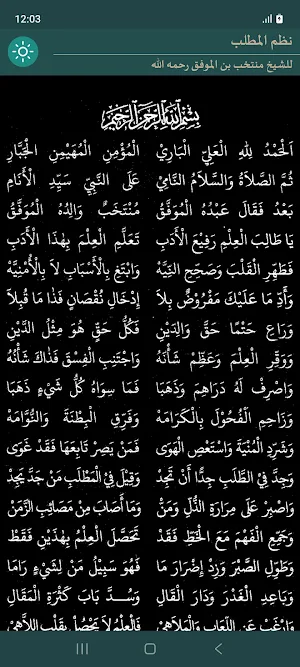 12:03
نظم المطلب
للشيخ منتخب بن الموفق رحمه الله
بِسْمِ اللهِ الرَّحْمٰنِ الرَّحِيْمِ
اَلْحَمْدُ لِلّٰهِ الْعَلِيِّ الْبَارِيْ الْمُؤْمِنِ الْمُهَيْمِنِ الْجَبَّارِ
ثُمَّ الصَّلَاةُ وَالسَّلَامُ النَّامِيْ عَلَى النَّبِيِّ سَيِّدِ الْأَنَامِ
بَعْدُ فَقَالَ عَبْدُهُ الْمُوَفَّقُ مُنْتَخَبٌ وَالِدُهُ الْمُوَفَّقُ
يَا طَالِبَ الْعِلْمِ رَفِيْعَ الْأَدَبِ تَعَلَّمِ الْعِلْمَ بِهٰذَا الْأَدَبِ
فَطَهِّرِ الْقَلْبَ وَصَحِّحِ النِّيَّهْ وَابْتَغِ بِالْأَسْبَابِ لَا بِالْأُمْنِيَّهْ
وَأَدِّ مَا عَلَيْكَ مَفْرُوْضٌ بِلَا إِدْخَالِ نُقْصَانٍ فَذَا مَا قُبِلَا
وَرَاعِ حَتْمًا حَقَّ وَالِدَيْنِ فَكُلُّ حَقٍّ هُوَ مِثْلُ الدَّيْنِ
وَوَقِّرِ الْعِلْمَ وَعَظِّمْ شَأْنَهُ وَاجْتَنِبِ الْفِسْقَ فَذَاكَ شَأْنُهُ
وَاصْرِفْ لَهُ دَرَاهِمَ وَذَهَبَا فَمَا سِوَاهُ كُلُّ شَيْءٍ ذَهَبَا
وَزَاحِمِ الْفُحُوْلَ بِالْكَرَامَهْ وَفَرِّقِ الْبِطْنَةَ وَالنُّوَّامَهْ
وَشَرِّدِ الْمُنْيَةَ وَاسْتَعْصِ الْهَوَى فَمَنْ يَصِرْ تَابِعَهَا فَقَدْ غَوَى
وَجِدَّ فِي الطَّلَبِ جِدًّا أَنْ تَجِدْ وَقِيْلَ فِي الْمَطْلَبِ مَنْ جَدَّ يَجِدْ
وَاصْبِرْ عَلَى مِرَارَةِ الذُّلِّ وَمَنْ وَمَا أَصَابَ مِنْ مَصَائِبِ الزَّمَنْ
وَجَمِّعِ الْفَهْمَ مَعَ الْخَطِّ فَقَدْ تَحَصَّلَ الْعِلْمُ بِهٰذَيْنِ فَقَطْ
وَطَوِّلِ الصَّبْرَ وَزِدْ إِضْرَارَ مَا فَهُوَ سَبِيْلُ مَنْ لِشَيْءٍ رَامَا
وَبَاعِدِ الْغَدْرَ وَدَارَ الْقَالِ وَسُدَّ بَابَ كَثْرَةِ الْمَقَالِ
وَارْغَبْ عَنِ اللَّعَابِ وَالْمَلَاهِيْ فَالْعِلْمُ لَا يَحْصُلُ بِقَلْبِ اللَّاهِيْ